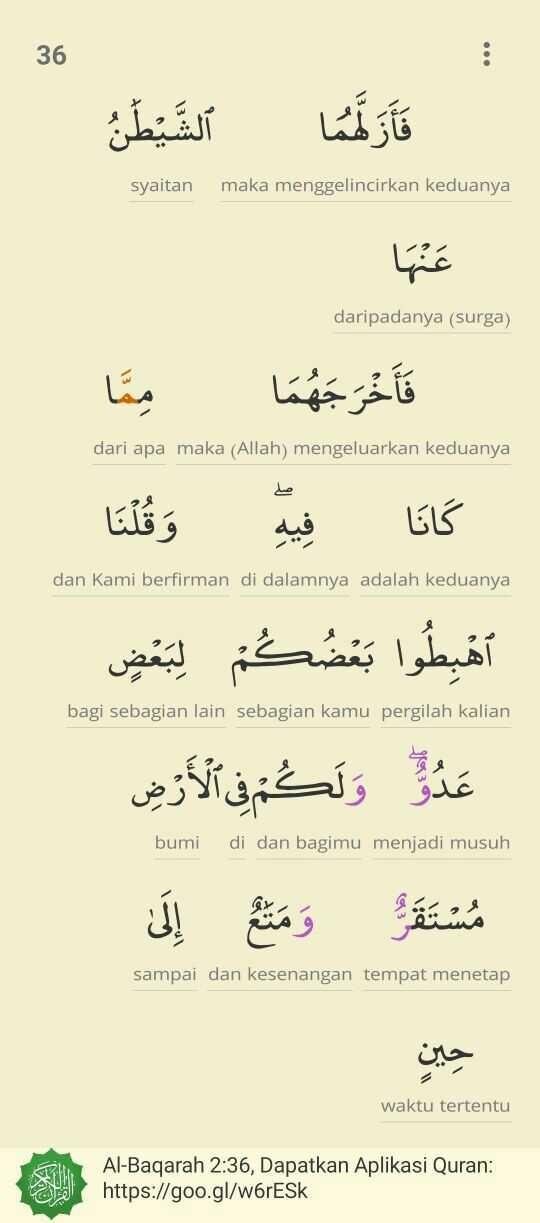 36
فَأَزَلَّهُمَا ٱلشَّيْطَٰنُ
maka menggelincirkan keduanya syaitan
عَنْهَا
daripadanya (surga)
فَأَخْرَجَهُمَا مِمَّا
maka (Allah) mengeluarkan keduanya dari apa
كَانَا فِيهِۖ وَقُلْنَا
adalah keduanya di dalamnya dan Kami berfirman
ٱهْبِطُوا بَعْضُكُمْ لِبَعْضٍ
pergilah kalian sebagian kamu bagi sebagian lain
عَدُوٌّۖ وَلَكُمْ فِي ٱلْأَرْضِ
menjadi musuh dan bagimu di bumi
مُسْتَقَرٌّ وَمَتَٰعٌ إِلَىٰ
tempat menetap dan kesenangan sampai
حِينٍ
waktu tertentu
Al-Baqarah 2:36, Dapatkan Aplikasi Quran:
https://goo.gl/w6rESk